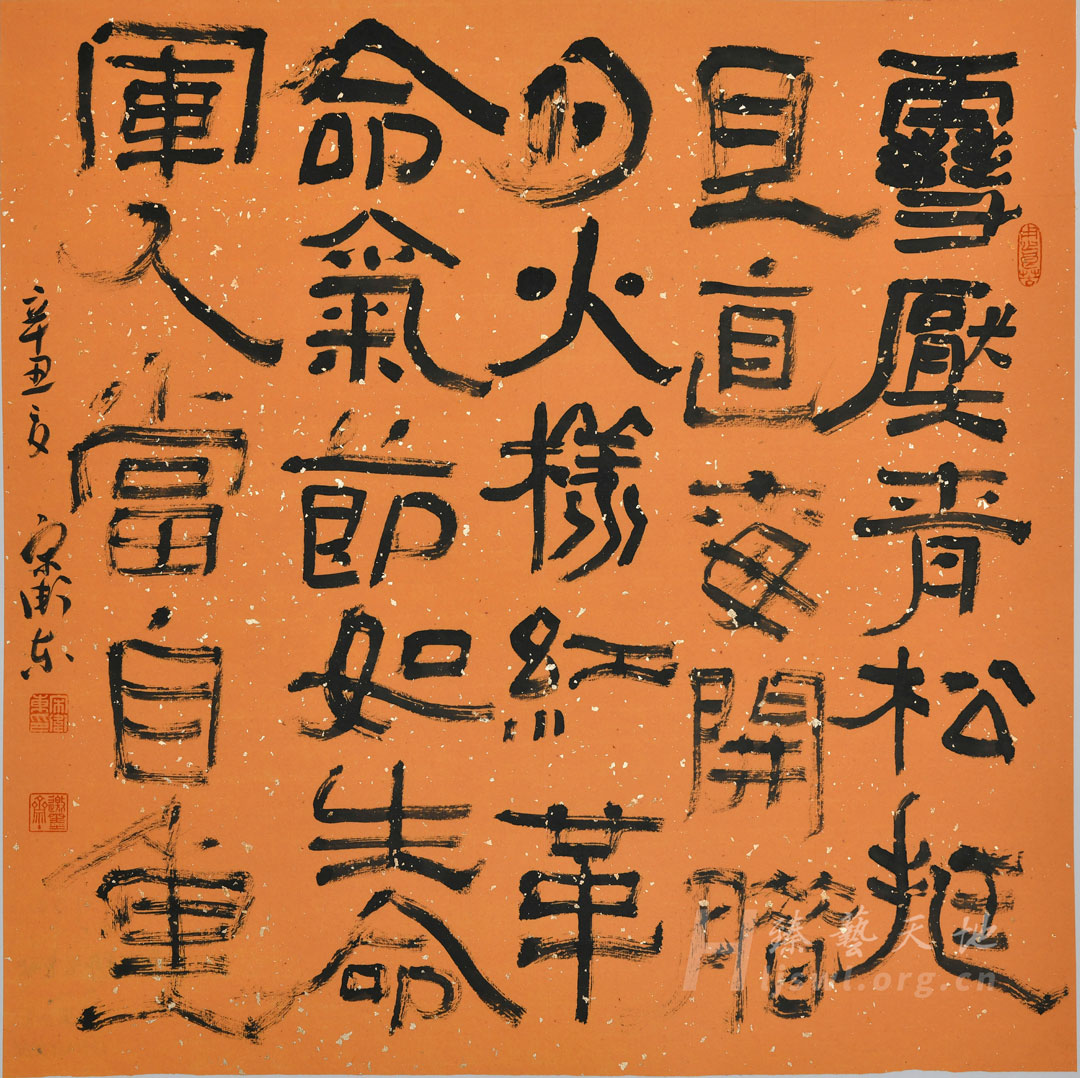 雪壓青松挺
且直苺開臘
月火樣紅革
命氣節如生命
軍人當自重
辛丑夏 宋衛東
臻藝天地